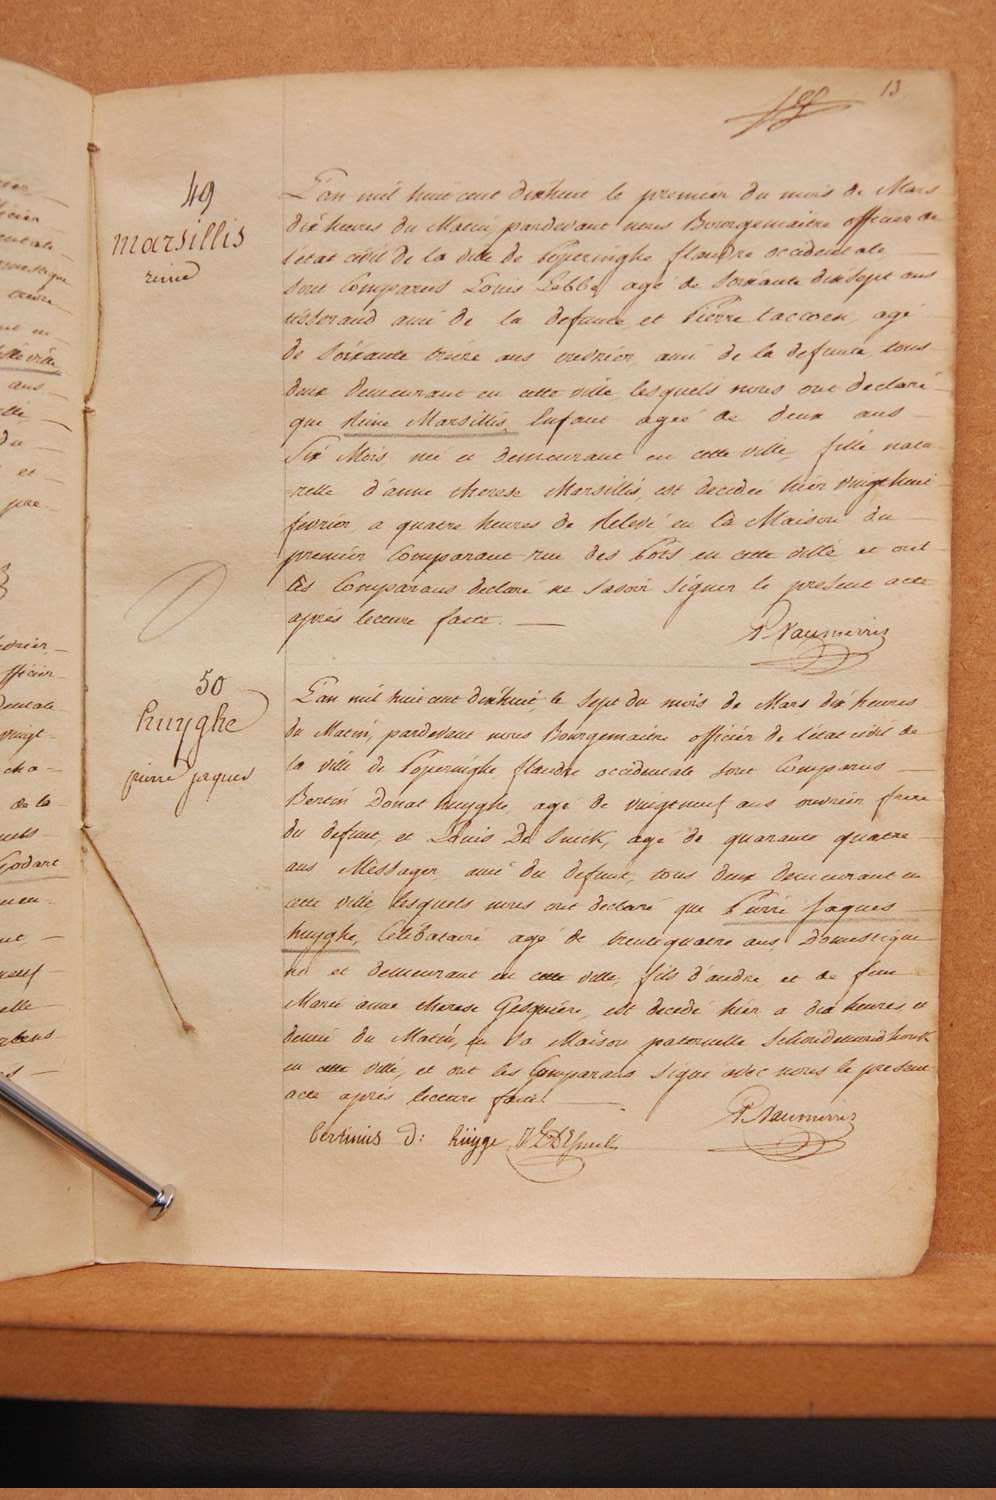 13
49
Marsillis
reine
L'an mil huit cent dix huit le premier du mois de Mars
dix heures du Matin, pardevant nous Bourgemaitre officier de
l'état civil de la ville de Poperinghe flandre occidentale
sont Comparus Louis Lebbe, agé de soixante dix sept ans
tisserand ami de la defunte et Pierre Caccoen, agé
de soixante treize ans, ouvrier, ami de la defunte, tous
deux demeurant en cette ville lesquels nous ont declaré
que Reine Marsillis, Enfant agée de deux ans
Six Mois, née et demeurant en cette ville, fille natu
relle d'anne therese Marsillis, est decedée hier vingt huit
fevrier a quatre heures de Relevé en la Maison du
premier Comparant rue des Pots en cette ville et ont
les Comparans declaré ne savoir signer le present acte
après lecture faite.
P. Vanmerris
50
huyghe
pierre jaques
L'an mil huit cent dix huit, le sept du mois de Mars dix heures
du Matin, pardevant nous Bourgemaitre officier de l'état civil de
la ville de Poperinghe flandre occidentale sont Comparus
Bertin Donat huyghe, agé de vingt neuf ans ouvrier frere
du defunt, et Louis De Smeck, agé de quarante quatre
ans Messager, ami du defunt, tous deux demeurant en
cette ville lesquels nous ont declaré que Pierre Jaques
huyghe, Célibataire agé de trente quatre ans, Domestique
né et demeurant en cette ville, fils d'andré et de feue
Marie anne therese Gesquiere, est decedé hier a dix heures et
demie du Matin, en sa Maison paternelle
en cette ville, et ont les Comparans signé avec nous le present
acte après lecture faite.
P. Vanmerris
bertinus d: hüyge